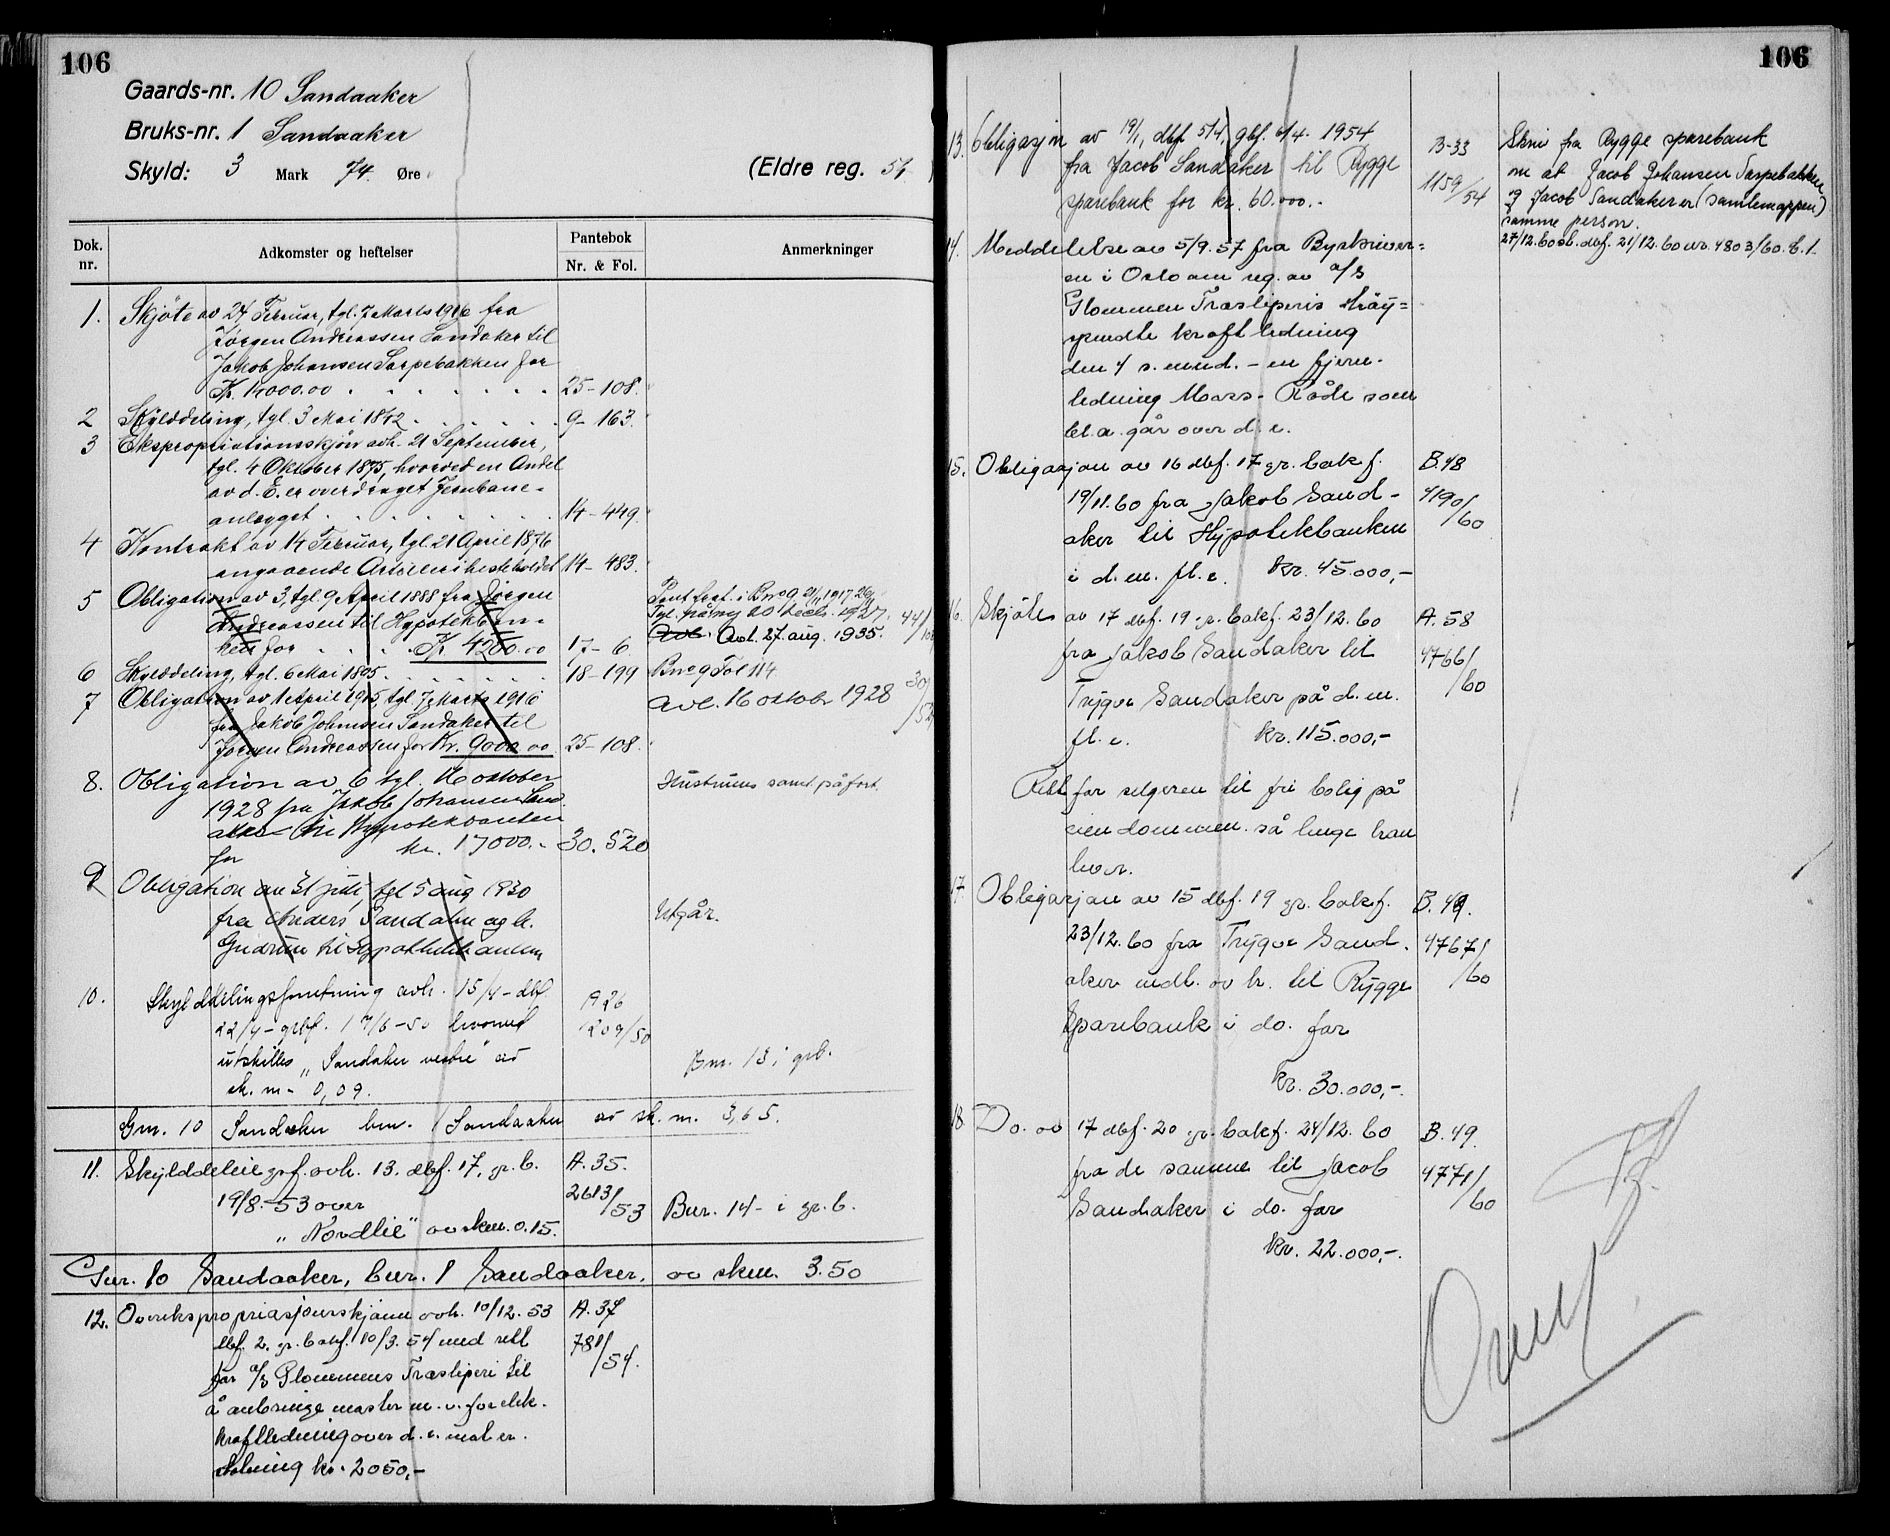 106
Gaards-nr. 10 Sandaaker
Bruks-nr. 1 Sandaaker
Skyld: 3 Mark 74 Øre (Eldre reg. 51 )
Dok. nr. Adkomster og heftelser Pantebok Nr. & Fol. Anmerkninger
1. Skjöte av 24 Februar, tgl. 7 Marts 1916 fra
Jörgen Andreassen Sandaker til
Jakob Johansen Sarpebakken for
Kr. 14000.00 . . . . . . . 25-108.
2 Skylddeling, tgl. 3 Mai 1842 . . . . . . 9-163.
3 Ekspropriationsskjön avh. 21 September,
tgl. 4 Oktober 1875, hvorved en Andel
av d. E. er overdraget Jernbane-
anlægget . . . . . . . 14-449.
4 Kontrakt av 14 Februar, tgl. 21 April 1876
angaaende Artillerihesteholdet 14-483.
5 Obligation av 3, tgl. 9 April 1888 fra Jörgen
Andreassen til Hypotekban-
ken for . . . . Kr 4200.00 17-6.
Tgl. på ny 20 decb. 1927.
Avl. Avl. 27. aug. 1935.
6 Skylddeling, tgl. 6 Mai 1895 . . . . . . 18-199 Bno 9 Fol 114
7 Obligation av 1 April 1915, tgl. 7 Marts 1916 avl. 16 oktob. 1928
fra Jakob Johansen Sandaker til
Jörgen Andreassen for Kr. 9000.00 25-108.
8. Obligation av 6 tgl. 16 oktober Hustruens samt. påført.
1928 fra Jakob Johansen Sand-
aker til Hypotekbanken
for kr. 17000.- 30. 520
9 Obligation av 31 juli, tgl 5 aug 1930
fra Anders Sandaker og h. Utgår.
Gudrun til Hypothekbanken
10. Skylddelingsforretning avh. 15/4 - dbf. 1926
22/4 - grbf. 17/6-50 hvorved 1209/50
utskilles "Sandaker vestre" av Bnr. 13 i grb.
sk. m. 0,09.
Gnr. 10 Sandaker bnr. 1 Sandaaker av sk. m. 3,65.
11. Skylddelingsf. avh. 13. dbf. 17. gr. b. A. 35.
19/8.-53 over 2613/53 Bnr. 14 - i gr. b.
"Nordlie" av skm. 0.15.
Gnr. 10 Sandaaker, bnr. 1 Sandaaker, av skm. 3.50
12. Overekspropriasjonsskjönn avh. 10/12. 53 A. 37
dbf. 2. gr. bokf. 10/3. 54 med rett 781/54.
for a/s Glommens Træsliperi til
å anbringe master m. v. for elek.
kraftledning over d. e. mot er-
statning kr. 2050,-
106
13. Obligasjon av 19/1, dbf. 5/4, gbf. 6/4. 1954 B-33
fra Jacob Sandaker til Rygge 1159/54
sparebank for kr. 60.000.-
Skriv fra Rygge sparebank
om at Jacob Johansen Sarpebakken
og Jacob Sandaker er (samlemappen)
samme person.
27/12.60 ob. dbf. 21/12.60 nr. 4803/60. b. 1.
14. Meddelelse av 5/9.57 fra Byskriver-
en i Oslo om reg. av a/s
Glommen Træsliperis höy-
spendte kraftledning
den 4 s. mnd. - en fjern-
ledning Moss - Råde som
bl. a. går over d. e.
15. Obligasjon av 16 dbf. 17 gr. bokf. B. 48
19/11.60 fra Jakob Sand- 4190/60
aker til Hypotekbanken
i d. m. fl. e. kr. 45.000,-
16. Skjöte av 17 dbf. 19 gr. bokf. 23/12.60 A. 58
fra Jakob Sandaker til 4766/60
Trygve Sandaker på d. m.
fl. e. kr. 115.000,-
Rett for selgeren til fri bolig på
eiendommen så lenge han
lever.
17. Obligasjon av 15 dbf. 19 gr. bokf. B. 49.
23/12.60 fra Trygve Sand- 4767/60
aker medl. av h. til Rygge
Sparebank i do. for
kr. 30.000,-.
18. Do. av 17 dbf. 20 gr. bokf. 24/12.60 B. 49.
fra de samme til Jacob 4771/60
Sandaker i do. for
kr. 22.000,-.